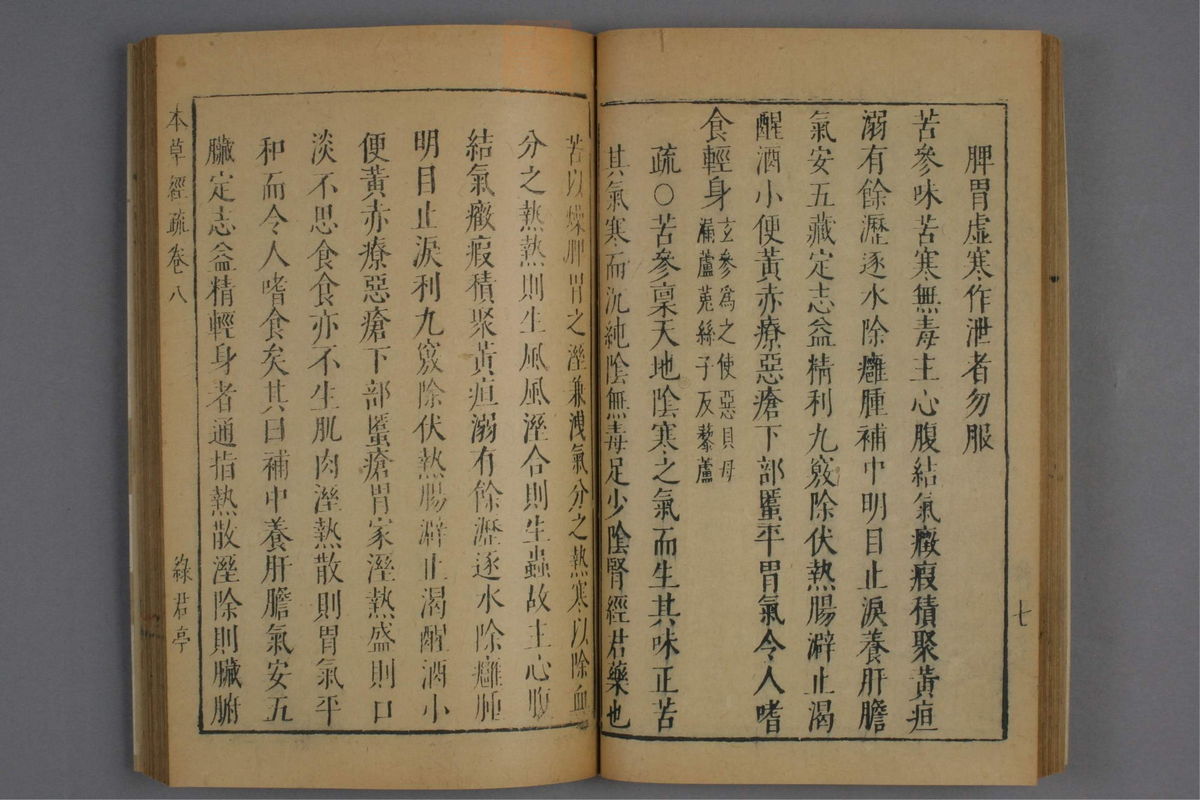 脾胃虛寒作泄者勿服
苦參味苦寒無毒主心腹結氣癥瘕積聚黃疸
溺有餘瀝逐水除癰腫補中明目止淚養肝膽
氣安五藏定志益精利九竅除伏熱腸澼止渴
醒酒小便黃赤療惡瘡下部䘌平胃氣令人嗜
食輕身
玄參爲之使惡貝母
漏蘆莵絲子反藜蘆
疏○苦參稟天地陰寒之氣而生其味正苦
其氣寒而沉純陰無毒足少陰腎經君藥也
七
苦以燥脾胃之溼兼洩氣分之熱寒以除血
分之熱熱則生風風溼合則生蟲故主心腹
結氣癥瘕積聚黃疸溺有餘瀝逐水除癰腫
明目止淚利九竅除伏熱腸澼止渴醒酒小
便黃赤療惡瘡下部䘌瘡胃家溼熱盛則口
淡不思食食亦不生肌肉溼熱散則胃氣平
和而令人嗜食矣其曰補中養肝膽氣安五
臟定志益精輕身者通指熱散溼除則臟腑
本草經疏卷八
綠君亭